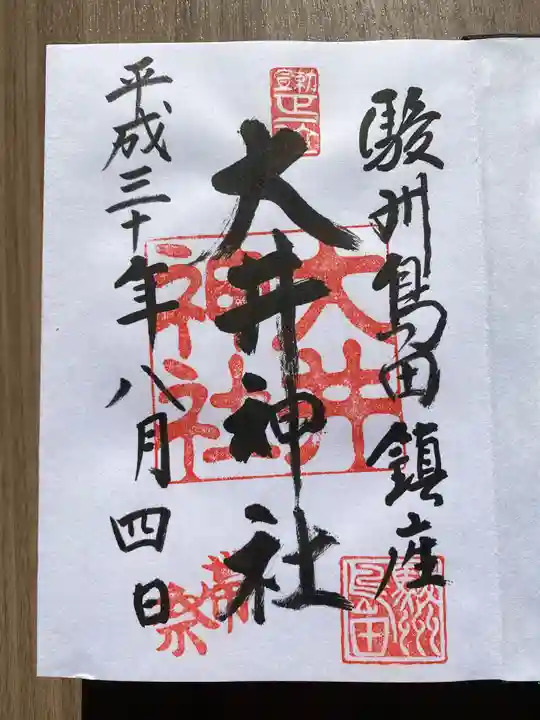 駿州島田鎮座
大井神社
平成三十年八月四日
大井
神社
駿州
島田
帯
祭